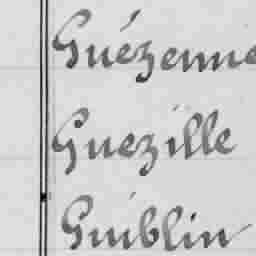 Guézenne
Guezille
Guiblin